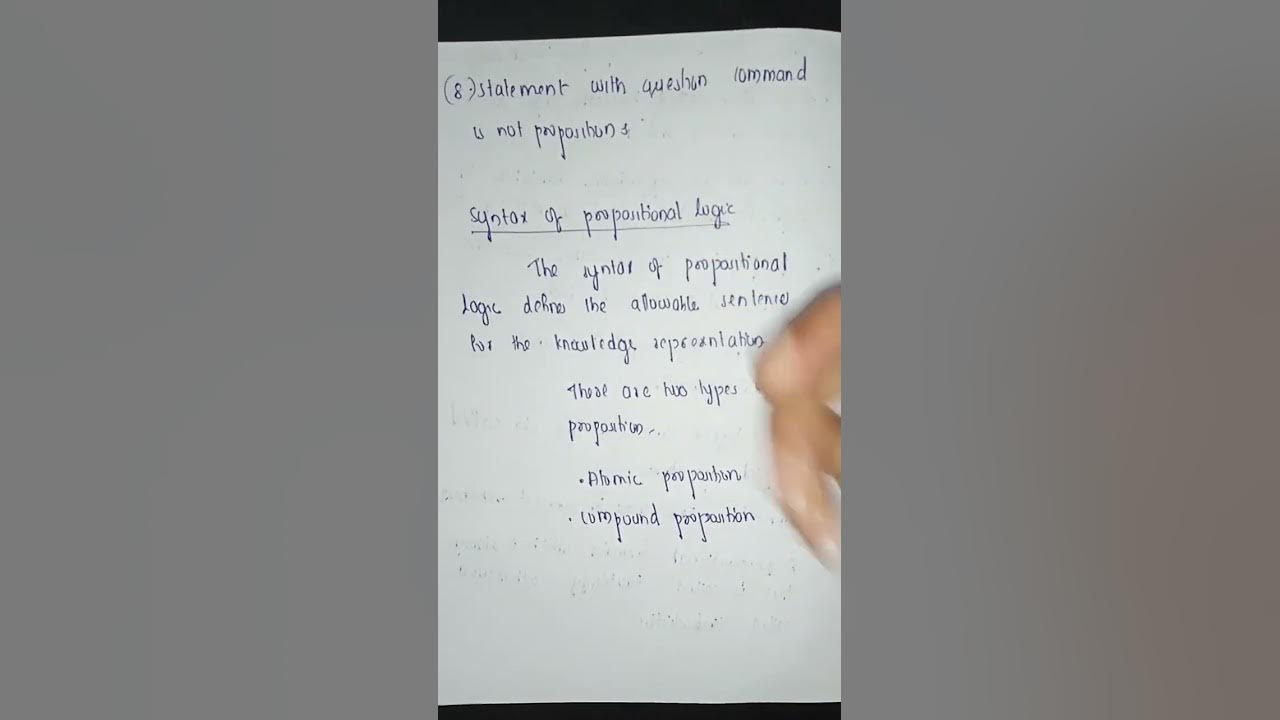 (8.) statement with question command
is not propositions
Syntax of propositional Logic
The syntax of propositional
Logic defines the allowable sentences
for the knowledge representation
There are two types
proposition..
. Atomic proposition
. Compound proposition